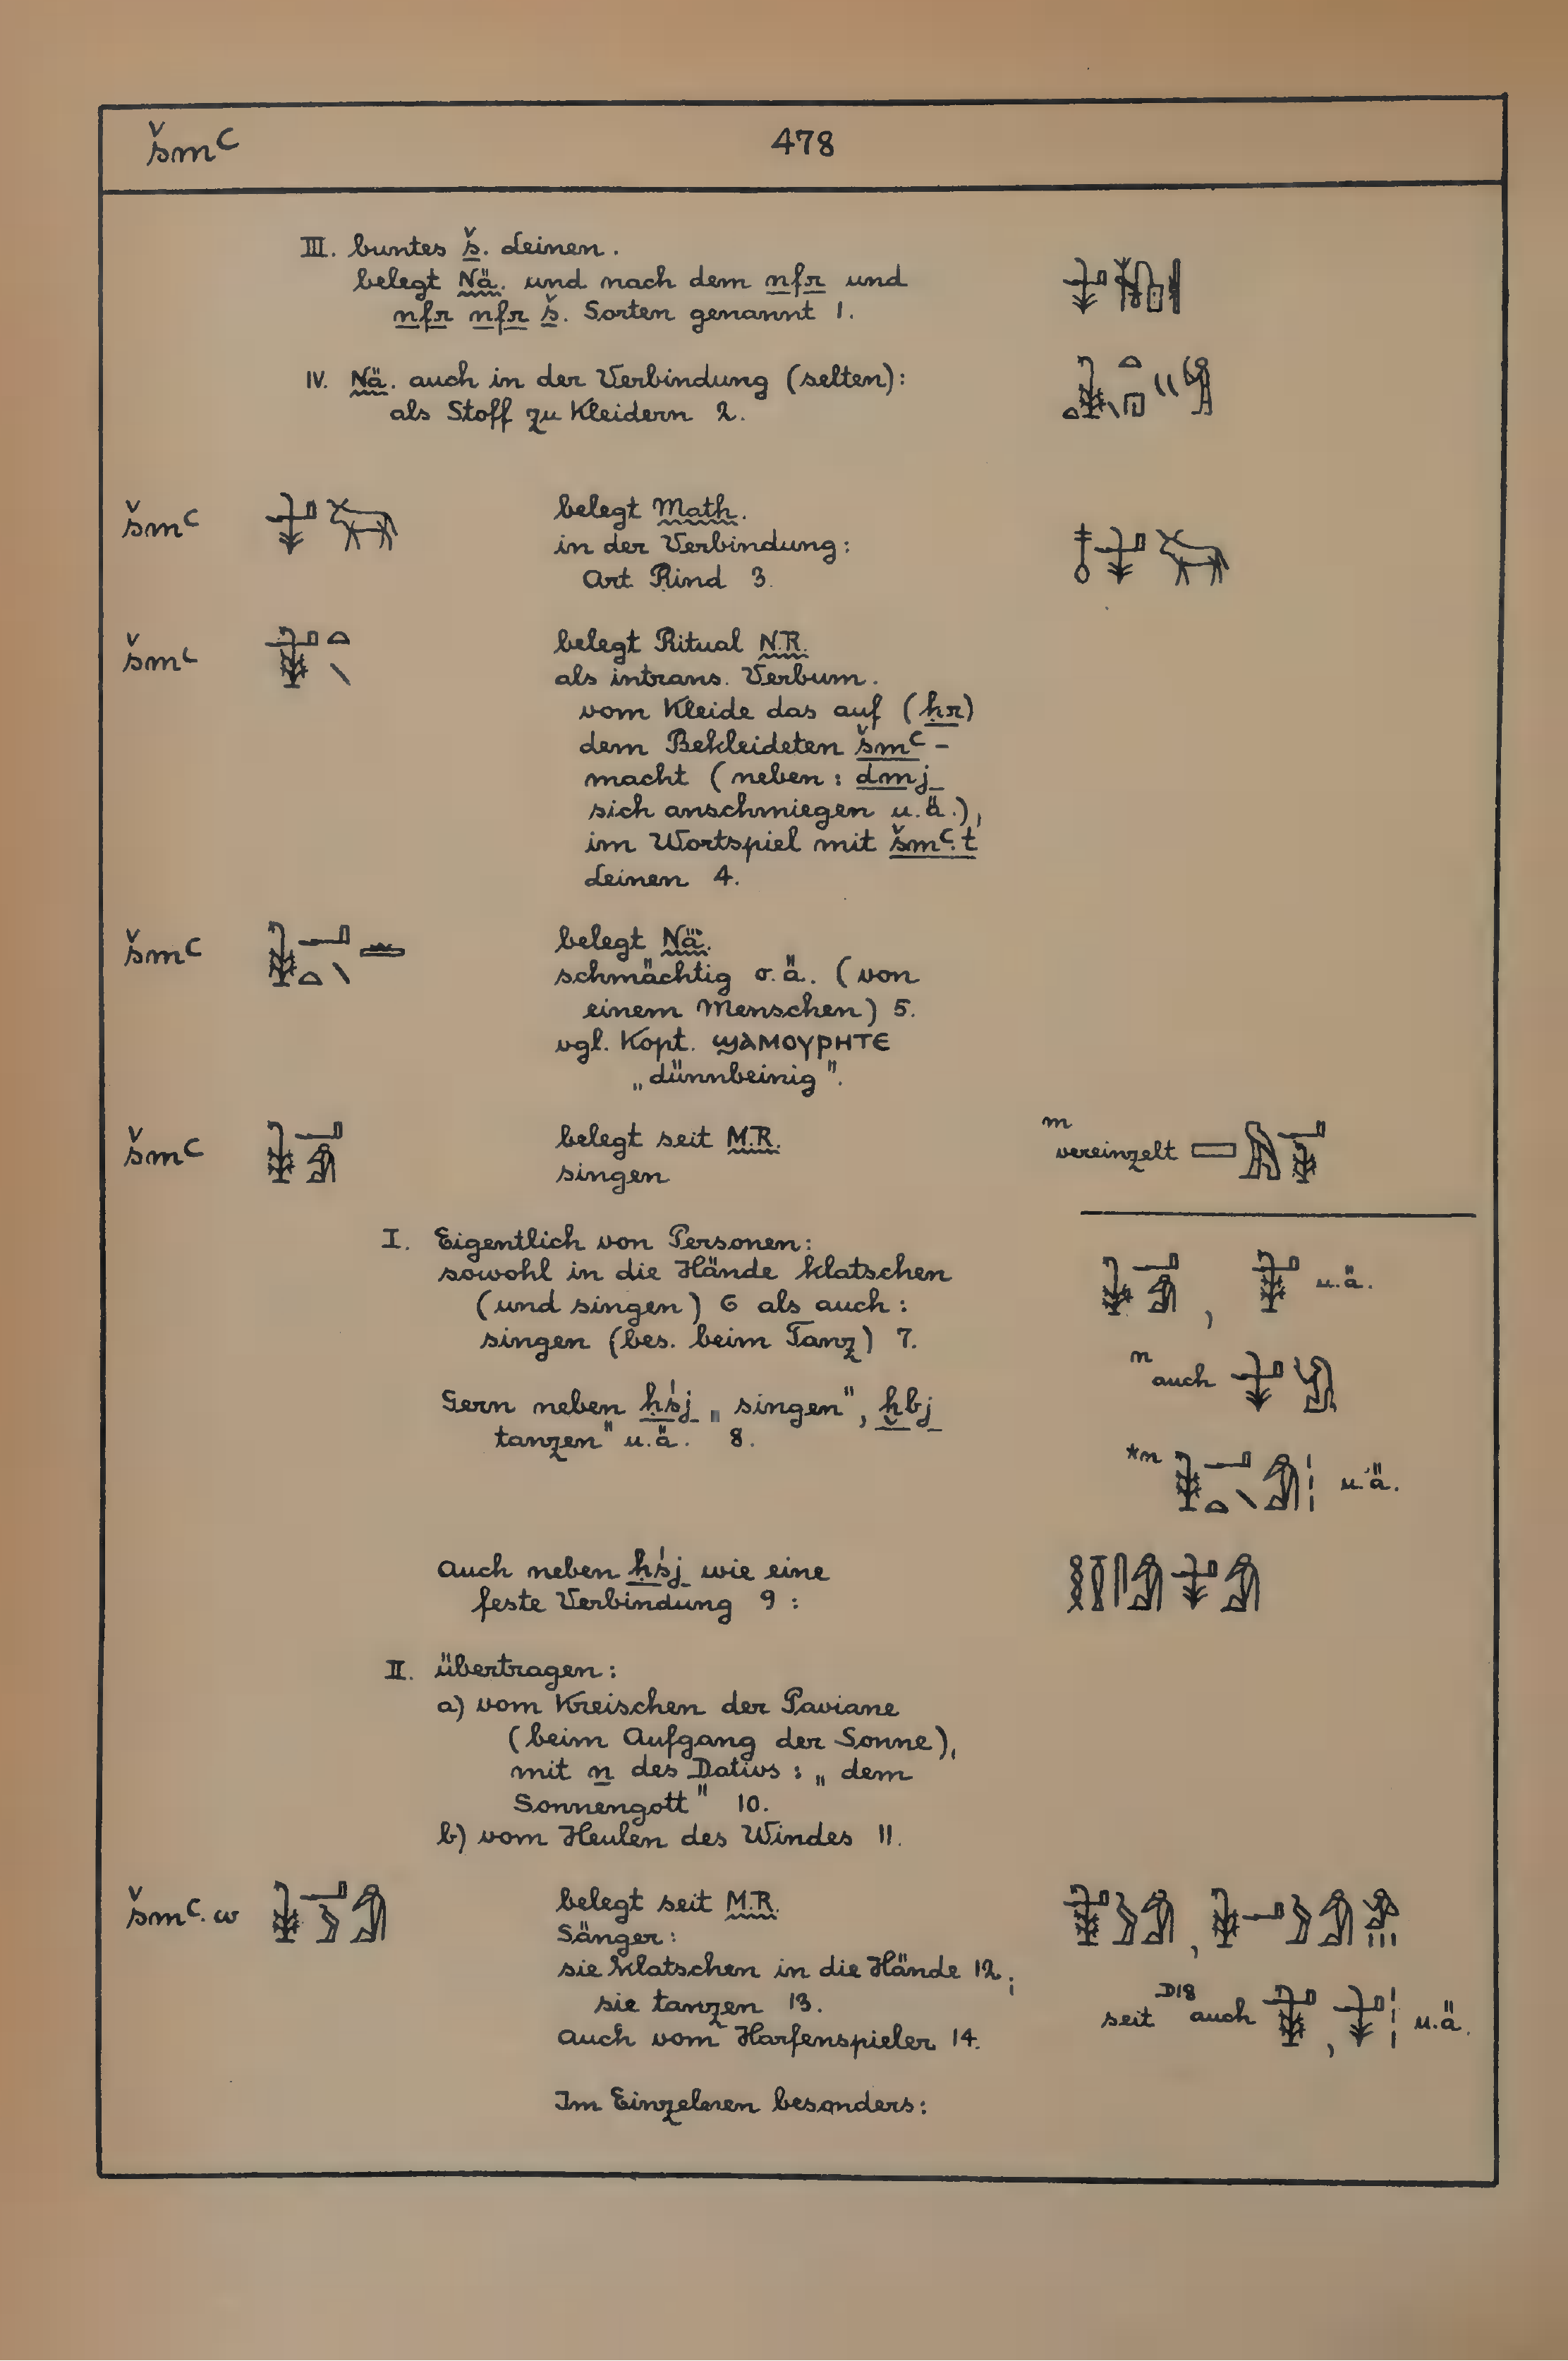 šmꜥ 478
III. buntes š. Leinen.
belegt Nä. und nach dem nfr und
nfr nfr š. Sorten genannt 1.
IV. Nä. auch in der Verbindung (selten):
als Stoff zu Kleidern 2.
šmꜥ belegt Math.
in der Verbindung:
Art Rind 3.
šmꜥ belegt Ritual N.R.
als intrans. Verbum.
vom Kleide das auf (ḥr)
dem Bekleideten šmꜥ-
macht (neben: dmj
sich anschmiegen u.ä.),
im Wortspiel mit šmꜥ.t
Leinen 4.
šmꜥ belegt Nä.
schmächtig o.ä. (von
einem Menschen) 5.
vgl. Kopt. ϣⲁⲙⲟⲩⲣⲏⲧⲉ
„dünnbeinig".
šmꜥ belegt seit M.R. m vereinzelt
singen
I. Eigentlich von Personen:
sowohl in die Hände klatschen
(und singen) 6 als auch: , u.ä.
singen (bes. beim Tanz) 7.
n auch
Gern neben ḥśj „singen", ḫbj
tanzen" u.ä. 8.
*n u.ä.
Auch neben ḥśj wie eine
feste Verbindung 9:
II. übertragen:
a) vom Kreischen der Paviane
(beim Aufgang der Sonne),
mit n des Dativs: „dem
Sonnengott" 10.
b) vom Heulen des Windes 11.
šmꜥ.w belegt seit M.R. ,
Sänger:
sie klatschen in die Hände 12;
sie tanzen 13. seit D18 auch , u.ä.
Auch vom Harfenspieler 14.
Im Einzelnen besonders: